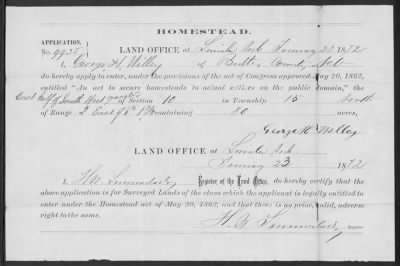 HOMESTEAD.
APPLICATION,
No. 9925
LAND OFFICE at Lincoln Neb January 23 1872
I, George H. Willey of Butler County Neb
do hereby apply to enter, under the provisions of the act of Congress approved May 20, 1862,
entitled "An act to secure homesteads to actual settlers on the public domain," the
East Half of South West quarter of Section 10 in Township 15 North
of Range 2 East of 6th P.M. containing 80 acres,
George H. Willey
LAND OFFICE at Lincoln Neb
January 23 1872
I, Register of the Land Office, do hereby certify that the
above application is for Surveyed Lands of the class which the applicant is legally entitled to
enter under the Homestead act of May 20, 1862, and that there is no prior, valid, adverse
right to the same.
Register